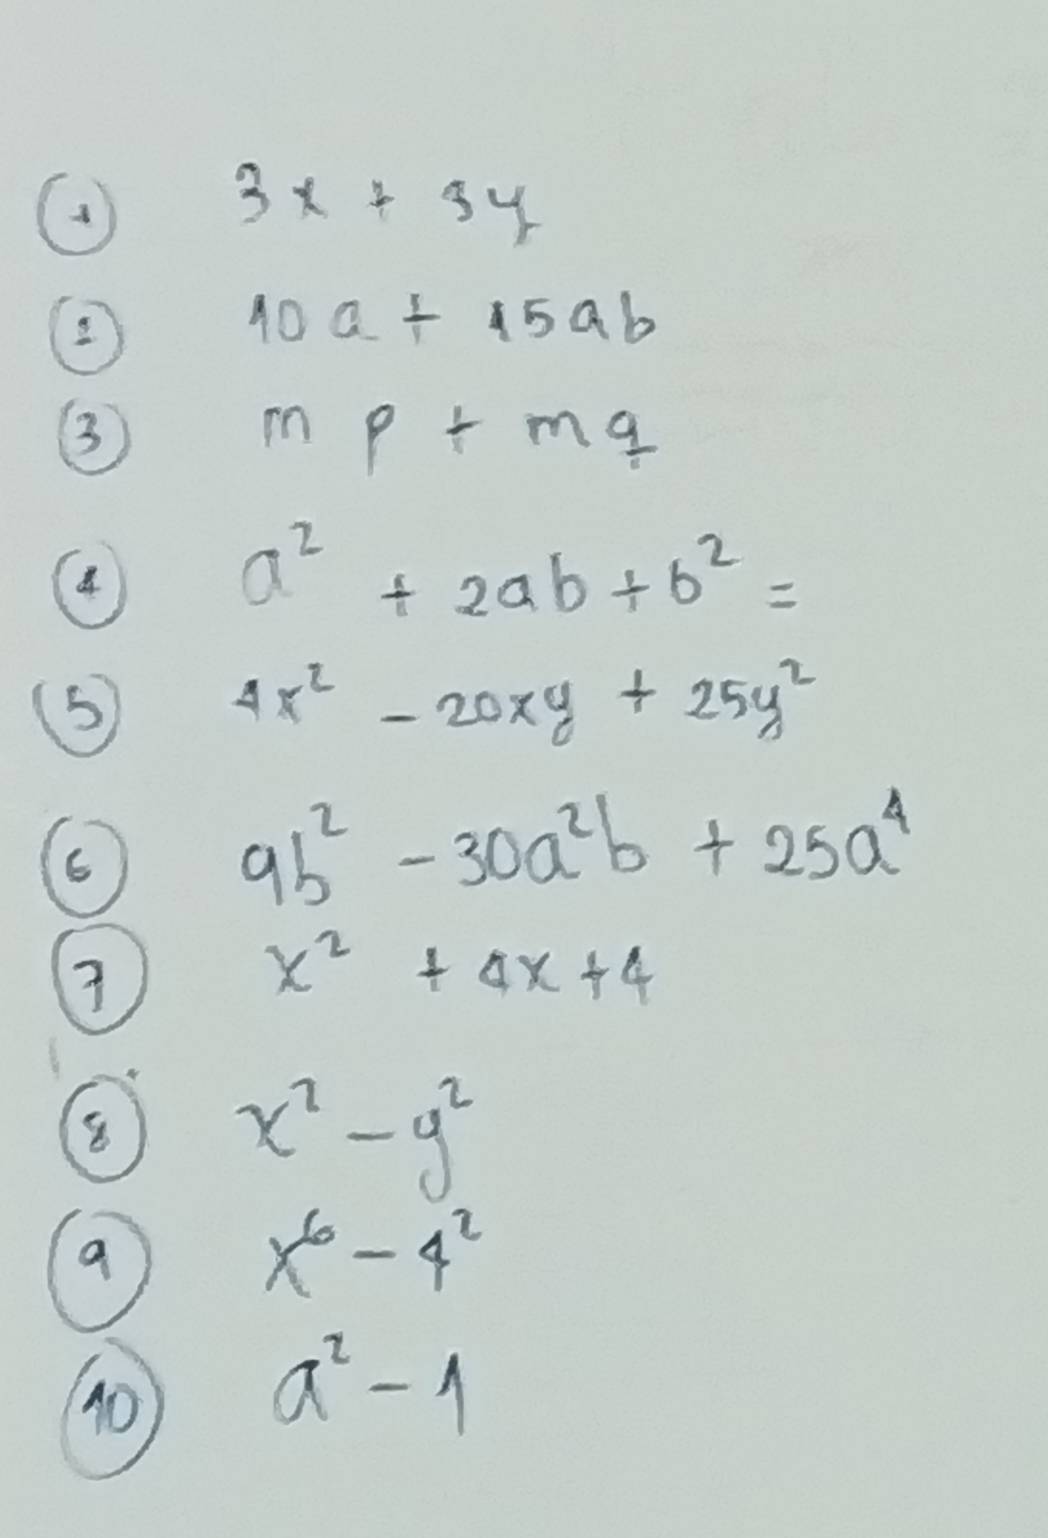 ① 3x + 3y
② 10a + 15ab
③ mp + mq
④ a² + 2ab + b² =
⑤ 4x² - 20xy + 25y²
⑥ 9b² - 30a²b + 25a⁴
⑦ x² + 4x + 4
⑧ x² - y²
⑨ x⁶ - 4²
⑩ a² - 1